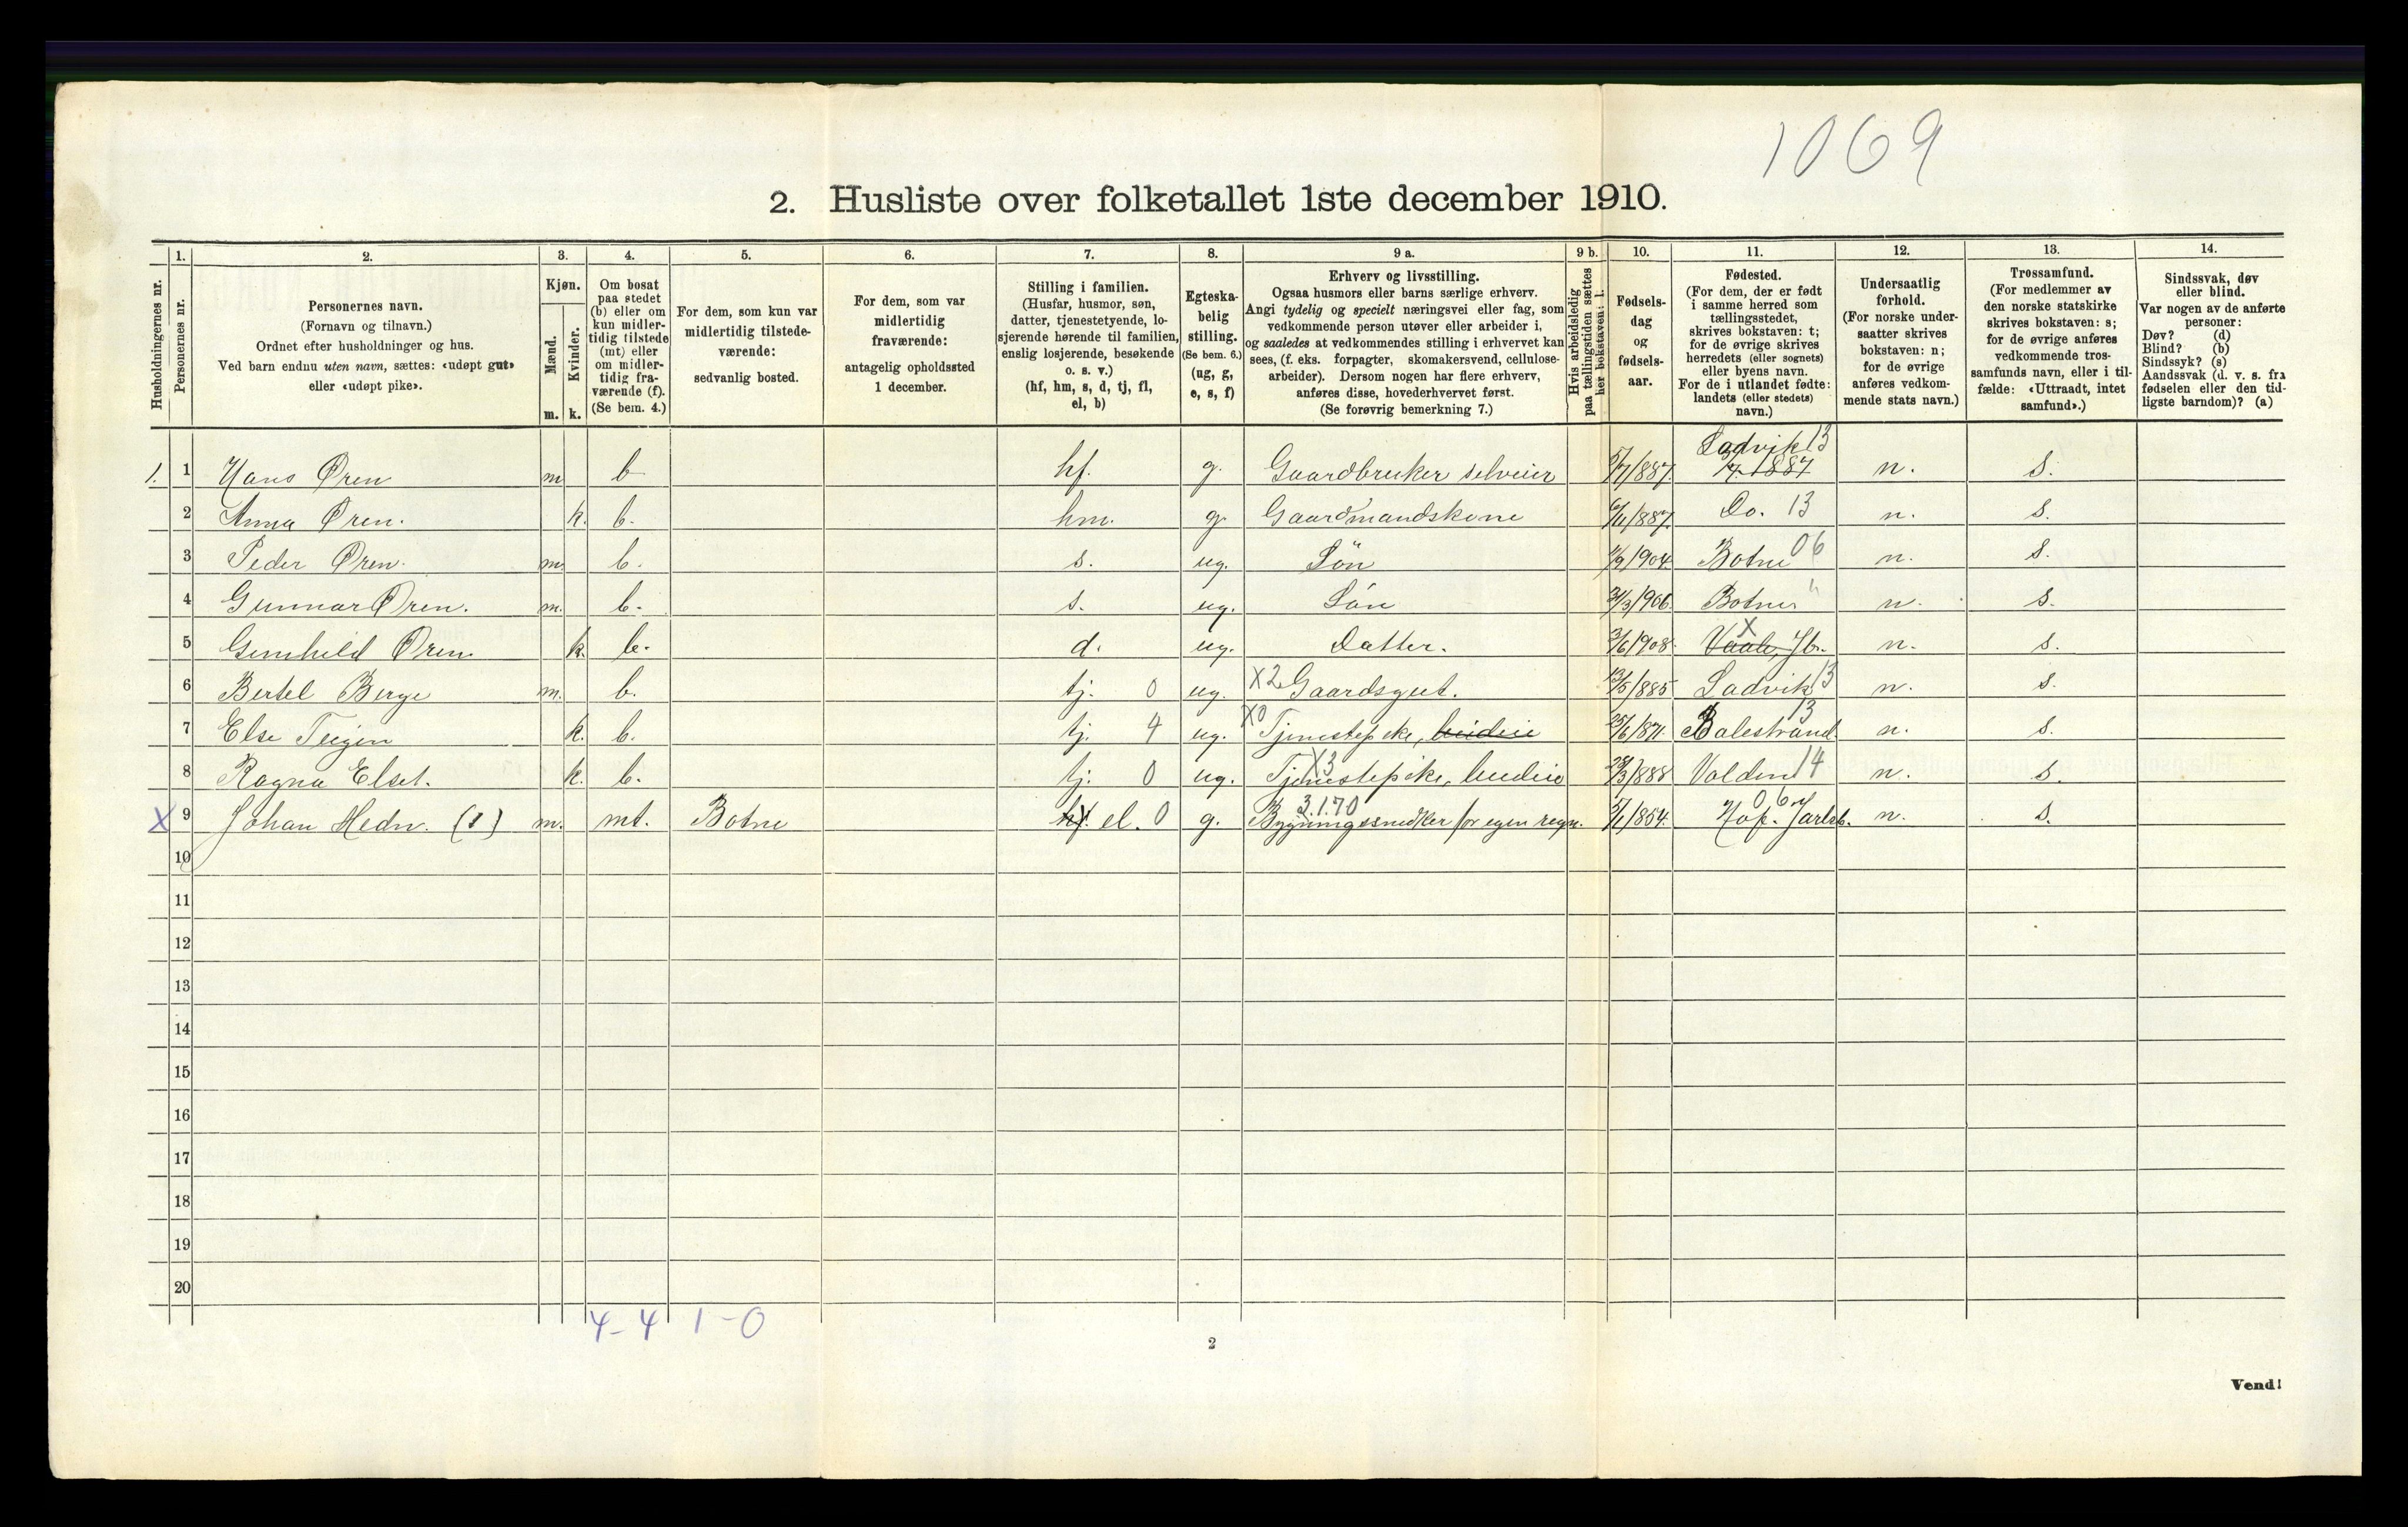 1069
2. Husliste over folketallet 1ste december 1910.
Husholdningernes nr.
1. Personernes nr.
2. Personernes navn.
(Fornavn og tilnavn.)
Ordnet efter husholdninger og hus.
Ved barn endnu uten navn, sættes: «udøpt gut»
eller «udøpt pike».
3. Kjøn.
Mænd. m.
Kvinder. k.
4. Om bosat
paa stedet
(b) eller om
kun midler-
tidig tilstede
(mt) eller
om midler-
tidig fra-
værende (f).
(Se bem. 4.)
5. For dem, som kun var
midlertidig tilstede-
værende:
sedvanlig bosted.
6. For dem, som var
midlertidig
fraværende:
antagelig opholdssted
1 december.
7. Stilling i familien.
(Husfar, husmor, søn,
datter, tjenestetyende, lo-
sjerende hørende til familien,
enslig losjerende, besøkende
o. s. v.)
(hf, hm, s, d, tj, fl,
el, b)
8. Egteska-
belig
stilling.
(Se bem. 6.)
(ug, g,
e, s, f)
9 a. Erhverv og livsstilling.
Ogsaa husmors eller barns særlige erhverv.
Angi tydelig og specielt næringsvei eller fag, som
vedkommende person utøver eller arbeider i,
og saaledes at vedkommendes stilling i erhvervet kan
sees, (f. eks. forpagter, skomakersvend, cellulose-
arbeider). Dersom nogen har flere erhverv,
anføres disse, hovederhvervet først.
(Se forøvrig bemerkning 7.)
9 b. Hvis arbeidsledig
paa tællingstiden sættes
her bokstaven: l.
10. Fødsels-
dag
og
fødsels-
aar.
11. Fødested.
(For dem, der er født
i samme herred som
tællingsstedet,
skrives bokstaven: t;
for de øvrige skrives
herredets (eller sognets)
eller byens navn.
For de i utlandet fødte:
landets (eller stedets)
navn.)
12. Undersaatlig
forhold.
(For norske under-
saatter skrives
bokstaven: n;
for de øvrige
anføres vedkom-
mende stats navn.)
13. Trossamfund.
(For medlemmer av
den norske statskirke
skrives bokstaven: s;
for de øvrige anføres
vedkommende tros-
samfunds navn, eller i til-
fælde: «Uttraadt, intet
samfund».)
14. Sindssvak, døv
eller blind.
Var nogen av de anførte
personer:
Døv? (d)
Blind? (b)
Sindssyk? (s)
Aandssvak (d. v. s. fra
fødselen eller den tid-
ligste barndom)? (a)
Ladvik 13
1. 1 Hans Øren m b hf. g. Gaardbruker selveier 5/7/887. 5/7 1887 n. s.
2 Anna Øren. k. b. hm. g. Gaardmandskone 6/11/887. Do. 13 n. s.
3 Peder Øren. m. b. s. ug. Søn /9 1904 Botne 06 n. s.
4 Gunnar Øren. m. b. s. ug. Søn 21/3/906 Botne " n. s.
5 Gunhild Øren k. b. d. ug. Datter. 3/6 1908 X Vaale, Jb. n. s.
6 Bertel Berge m. b. tj. 0 ug. X2 Gaardsgut. 13/5/885 Ladvik 13 n. s.
7 Else Teigen k. b. tj. 4 ug. X0 Tjenestepike, budeie 25/6/871. Balestrand 13 n. s.
8 Ragna Elset. k. b. tj. 0 ug. X3 Tjenestepike, budeie /3/888 Volden 14 n. s.
X 9 Johan Hedn. (1) m. mt. Botne hf. el. 0 g. 3.1.70 Bygningssnedker for egen regn. 5/1/854. 06 Hof. Jarlsb. n. s.
10
11
12
13
14
15
16
17
18
19
20
4-4 1-0
2
Vend!